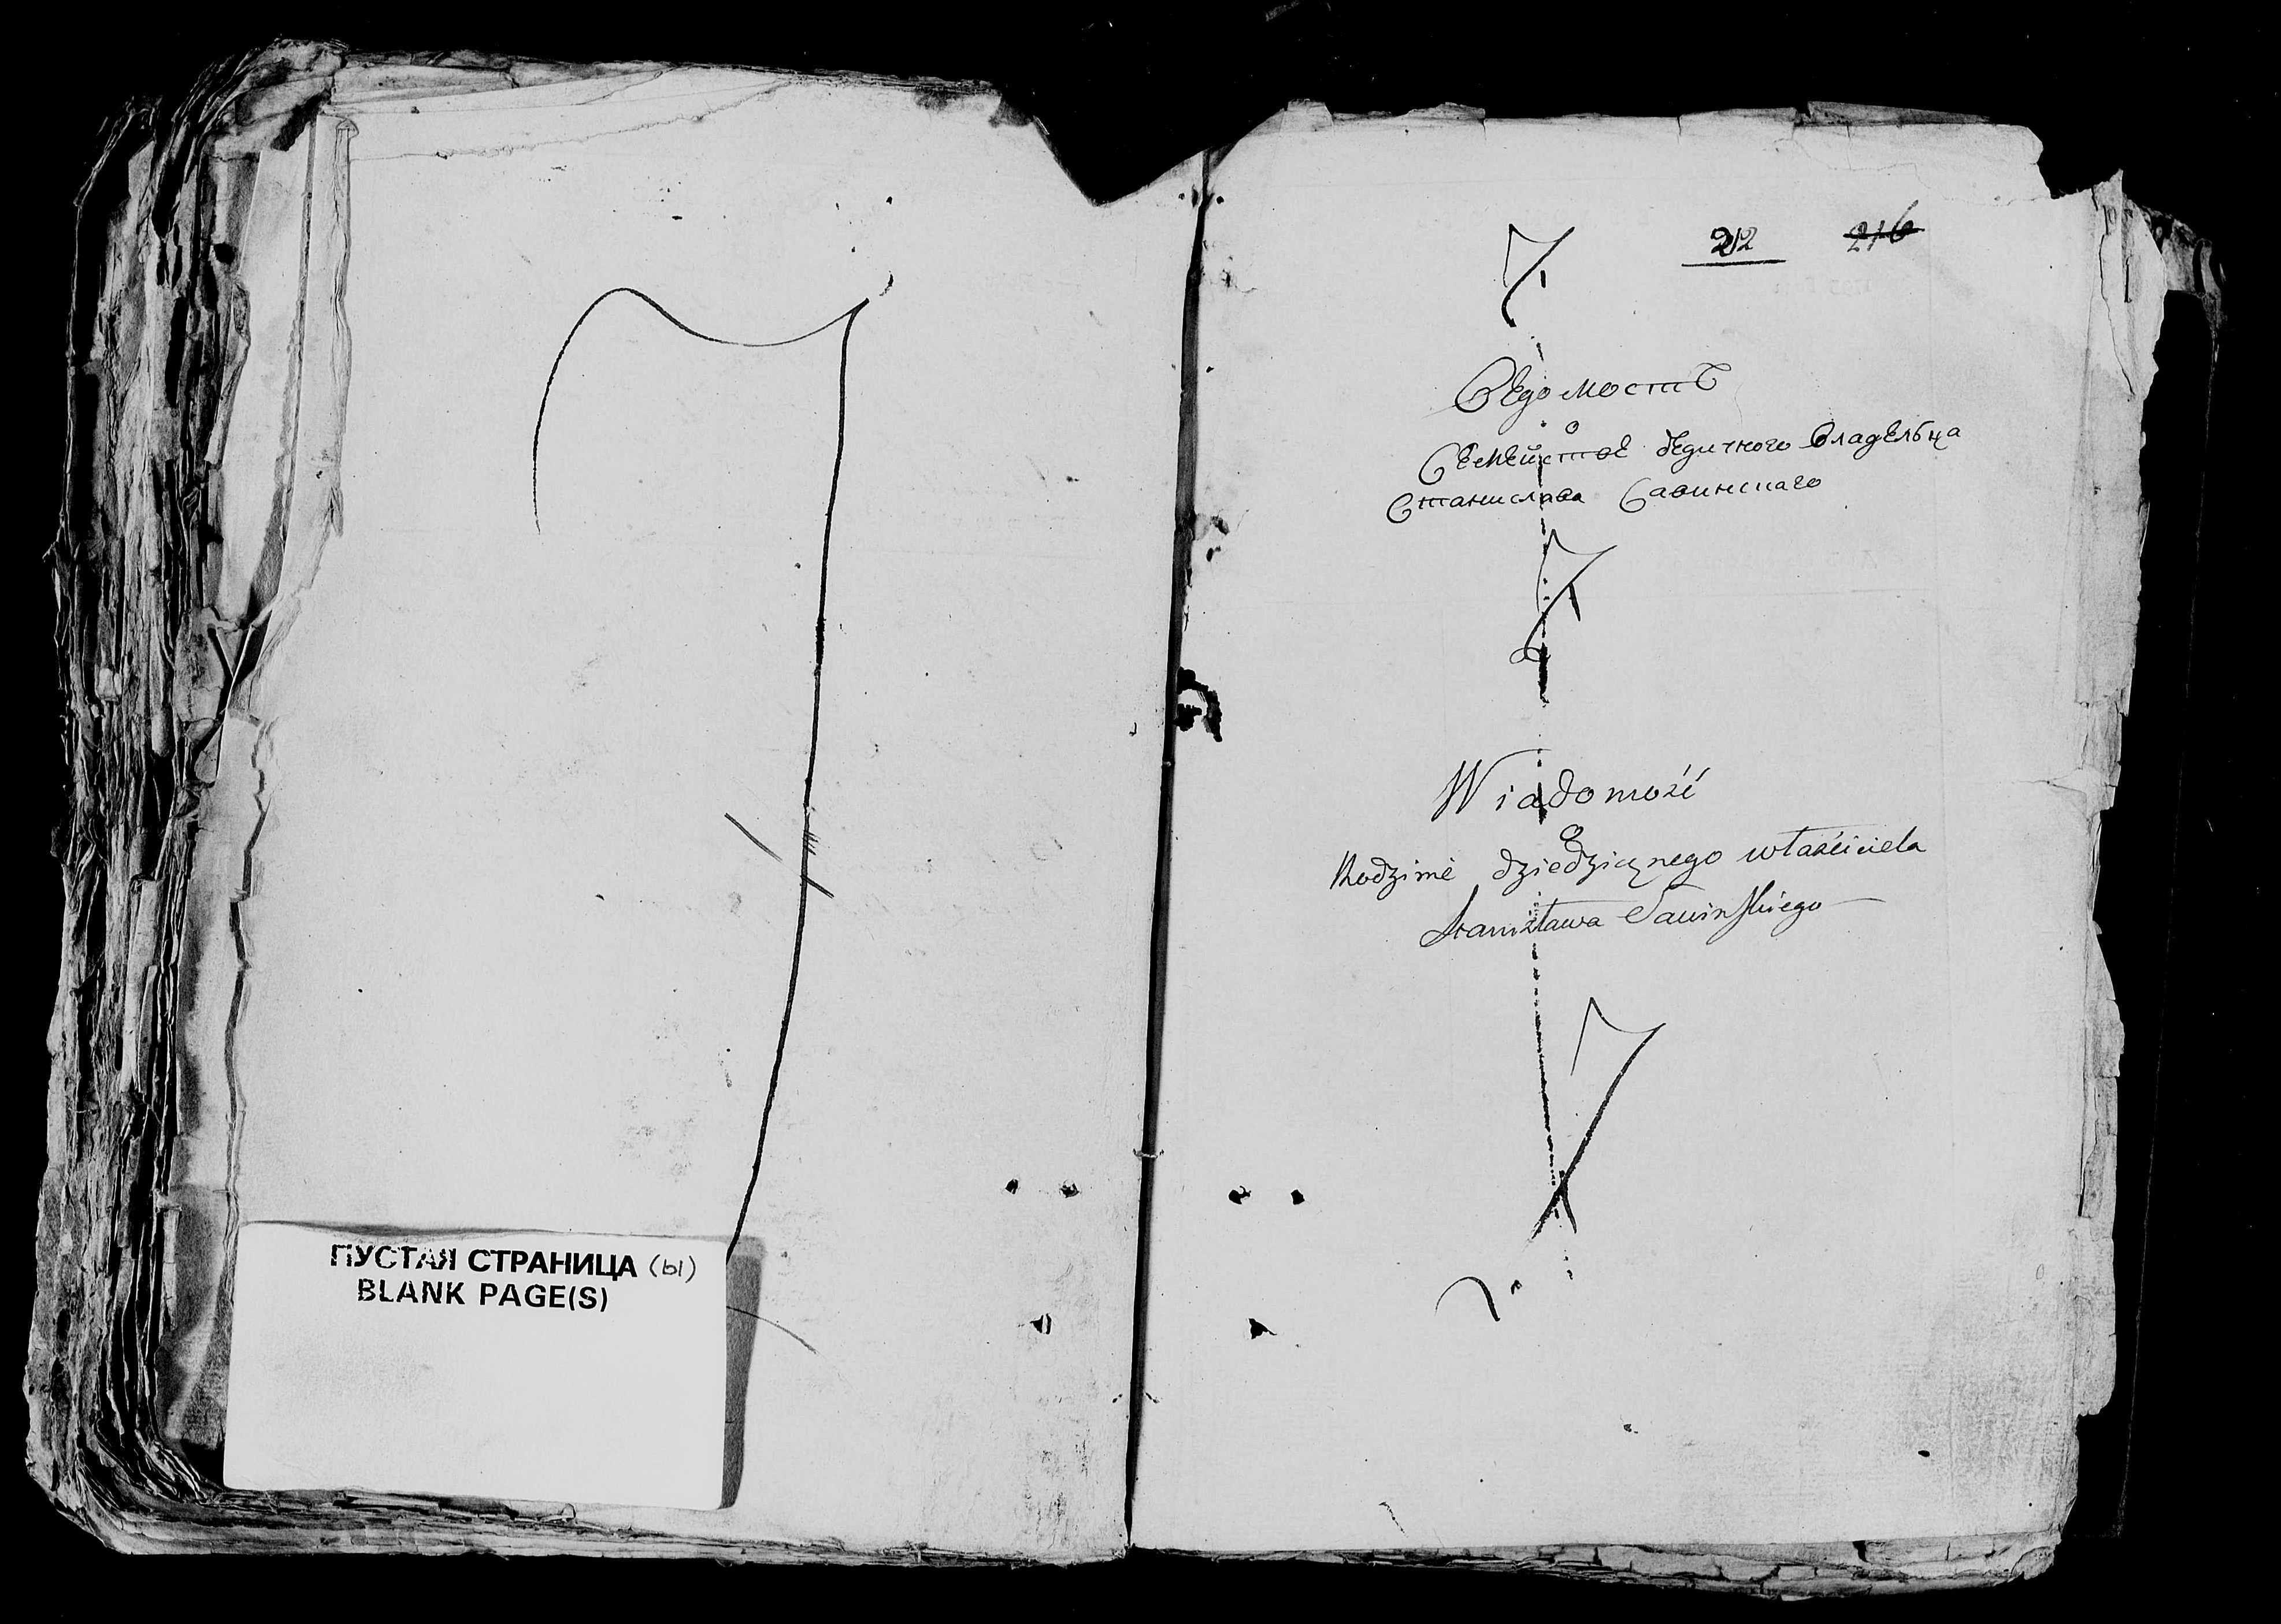 ПУСТАЯ СТРАНИЦА (ы)
BLANK PAGE(S)
212 216
Ведомость
о
Семействе дедичного владельца
Станислава Савинскаго
Wiadomość
O
Rodzinie dziedzicznego właściciela
Stanisława Sawinskiego